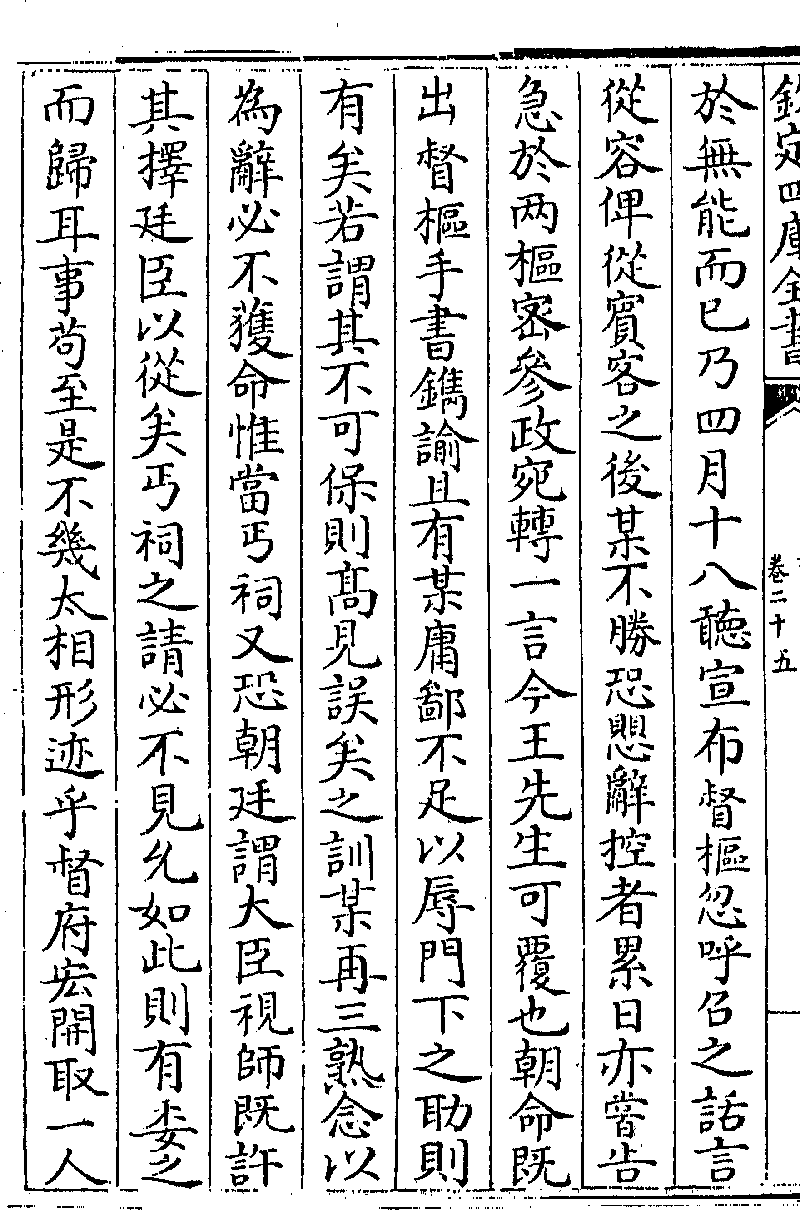 欽定四庫全書
卷二十五
於無能而已乃四月十八聽宣布督樞忽呼召之話言
從容俾從賓客之後某不勝恐愳辭控者累日亦嘗告
急於两樞密參政宛轉一言今王先生可覆也朝命既
出督樞手書鐫諭且有某庸鄙不足以辱門下之助則
有矣若謂其不可保則髙見誤矣之訓某再三熟念以
為辭必不獲命惟當丐祠又恐朝廷謂大臣視師既許
其擇廷臣以從矣丐祠之請必不見允如此則有委之
而歸耳事苟至是不幾太相形迹乎督府宏開取一人